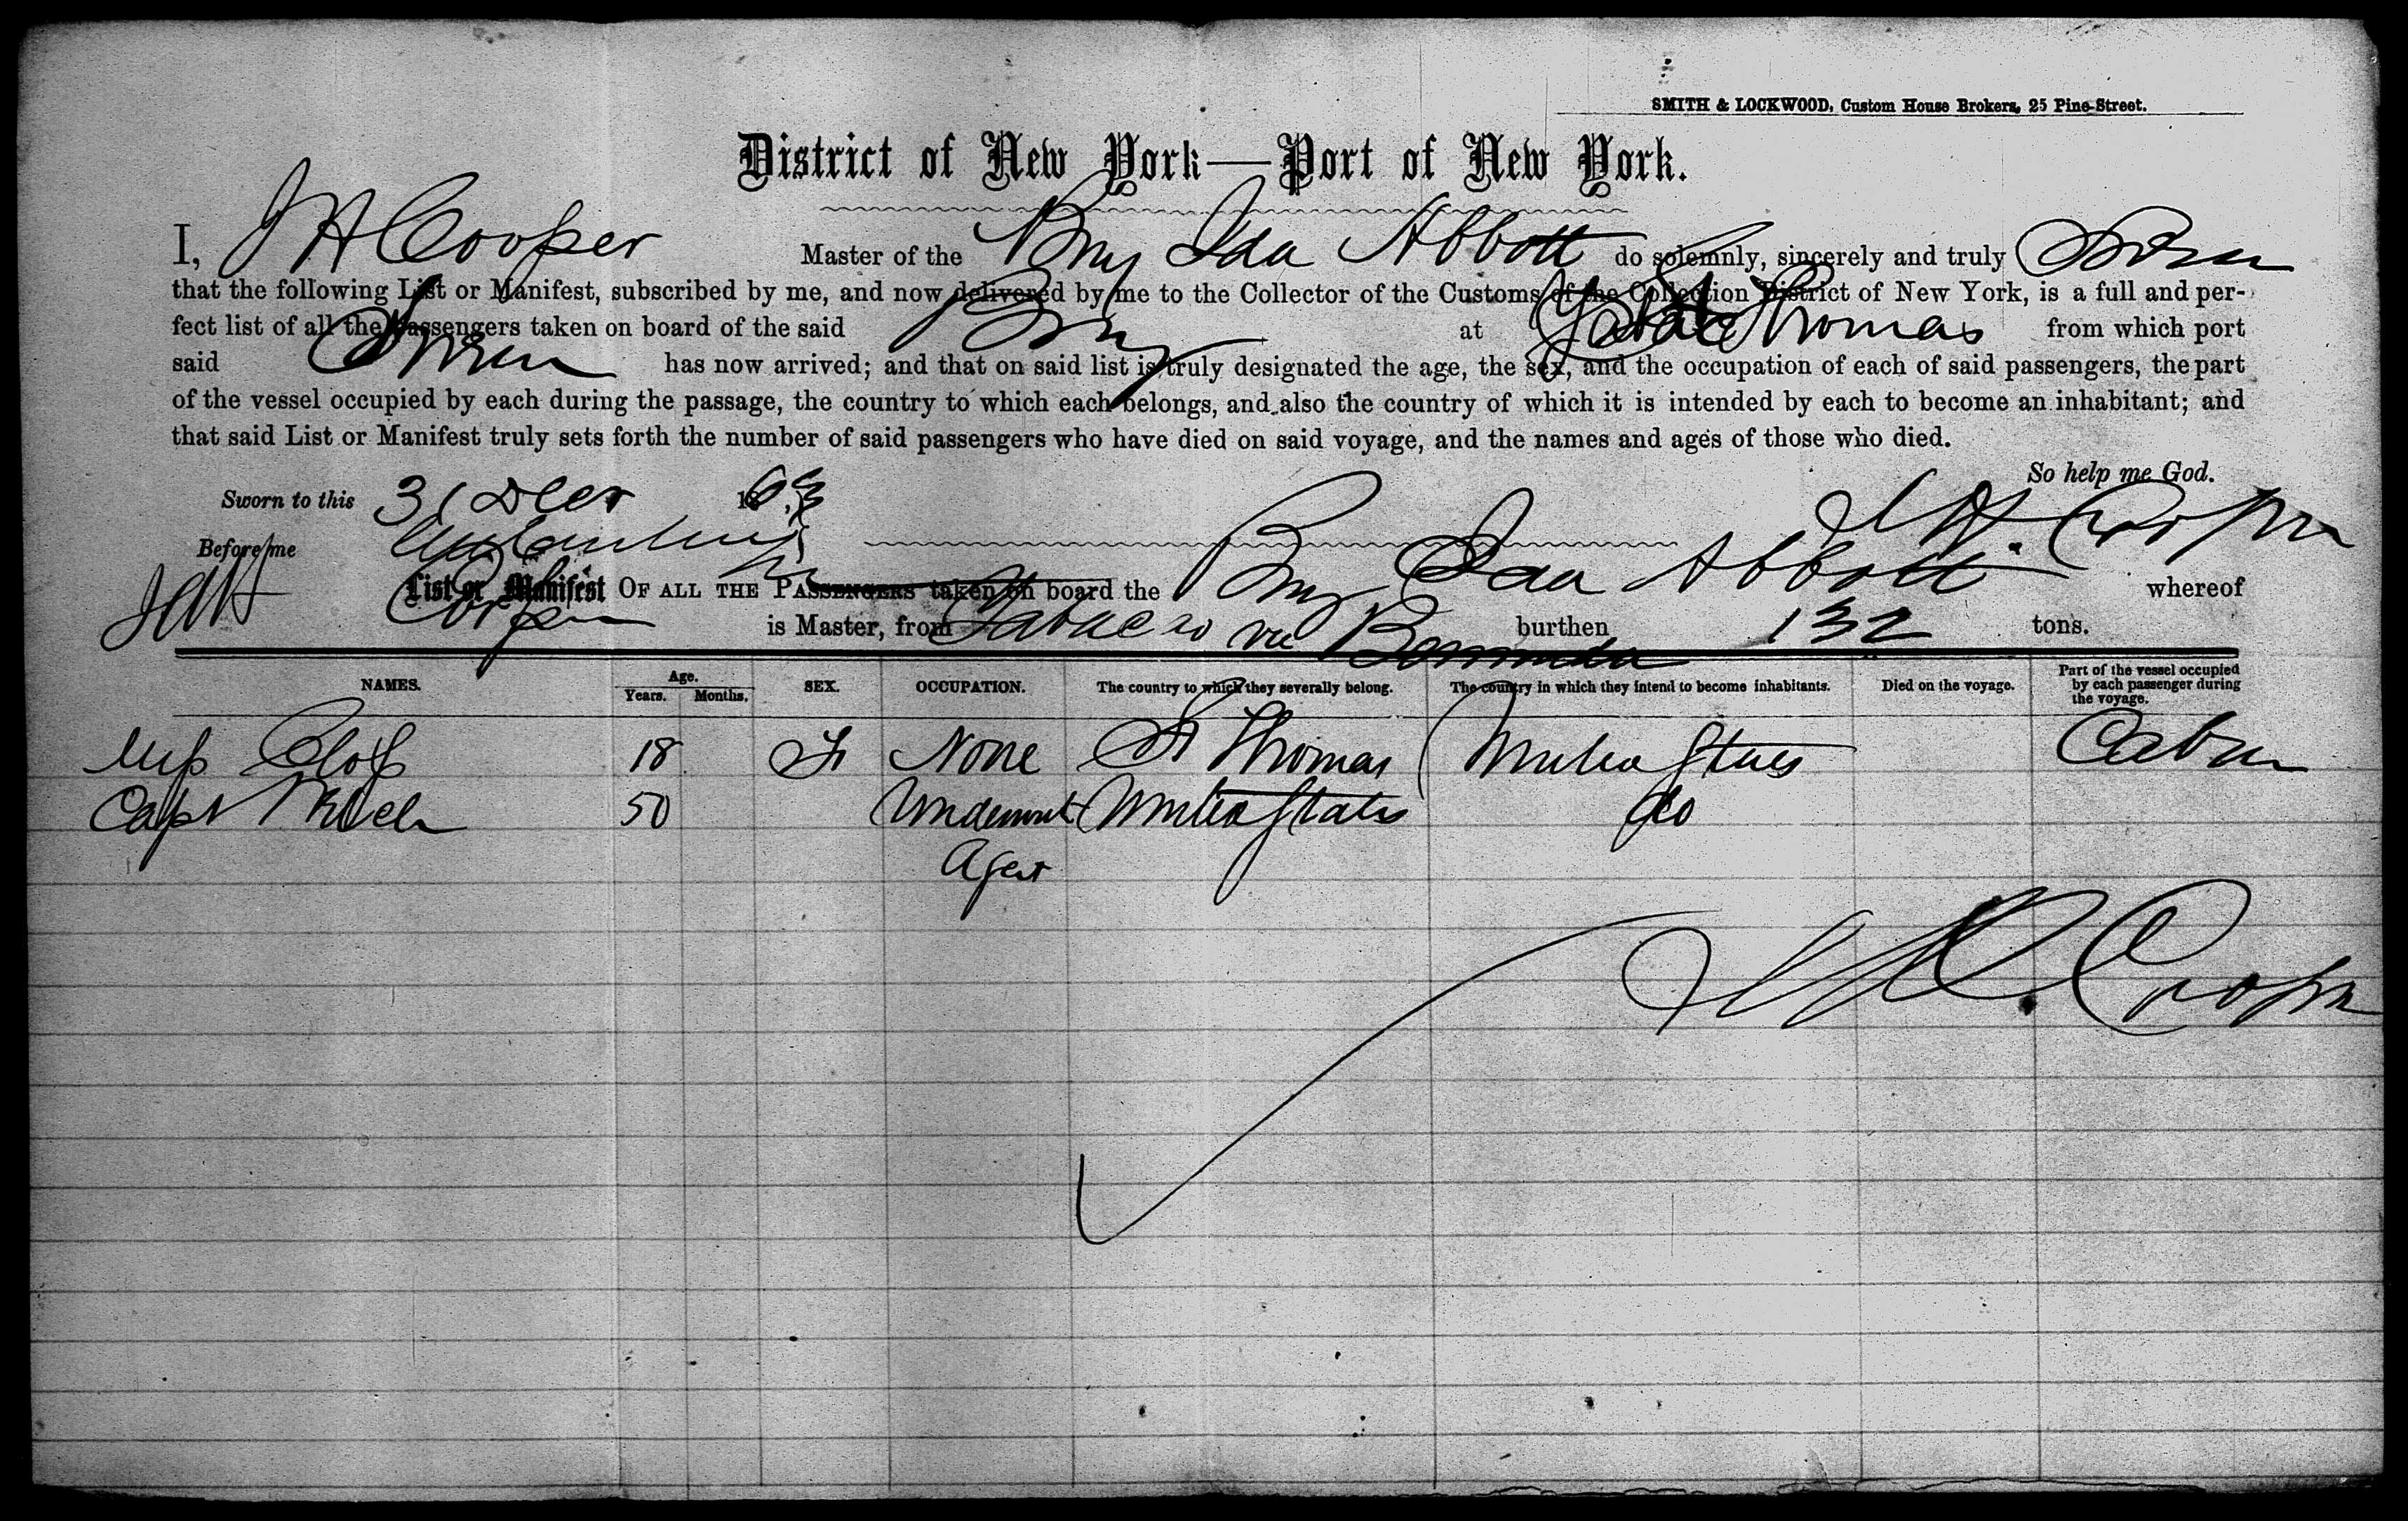 SMITH & LOCKWOOD, Custom House Brokers, 25 Pine-Street.
District of New York—Port of New York.
I, J H Cooper Master of the Brig Ida Abbott do solemnly, sincerely and truly Swear
that the following List or Manifest, subscribed by me, and now delivered by me to the Collector of the Customs of the Collection District of New York, is a full and per-
fect list of all the Passengers taken on board of the said Brig at St Thomas from which port
said has now arrived; and that on said list is truly designated the age, the sex, and the occupation of each of said passengers, the part
of the vessel occupied by each during the passage, the country to which each belongs, and also the country of which it is intended by each to become an inhabitant; and
that said List or Manifest truly sets forth the number of said passengers who have died on said voyage, and the names and ages of those who died.
So help me God.
Sworn to this 31 Decr 18
J H. Cooper
Before me
List or Manifest OF ALL THE PASSENGERS taken on board the Brig Ida Abbott whereof
Cooper is Master, from via Bermuda burthen 132 tons.
NAMES. Age. Years. Months. SEX. OCCUPATION. The country to which they severally belong. The country in which they intend to become inhabitants. Died on the voyage. Part of the vessel occupied by each passenger during the voyage.
18 F None St Thomas United States Cabin
Capt 50 Underwrt United States do
Agent
J H Cooper